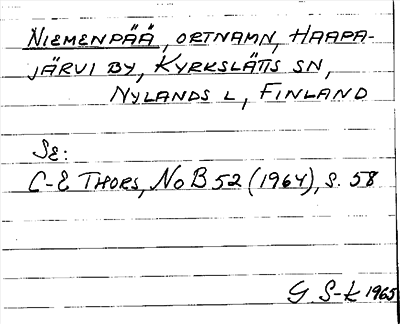 NIEMENPÄÄ, ORTNAMN, HAAPA-
JÄRVI BY, KYRKSLÄTTS SN,
NYLANDS L, FINLAND
SE:
C-E THORS, NOB 52 (1964), S. 58
G S-k 1965